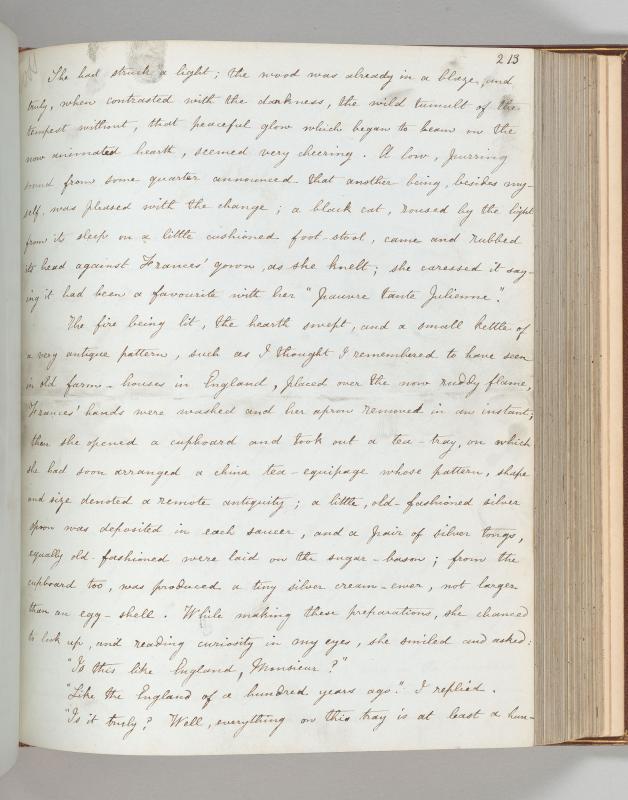 213
She had struck a light; the wood was already in a blaze, and
truly, when contrasted with the darkness, the wild tumult of the
tempest without, that peaceful glow which began to beam on the
now animated hearth, seemed very cheering. A low, purring
sound from some quarter announced that another being, besides my-
self, was pleased with the change; a black cat, roused by the light
from its sleep on a little cushioned foot-stool, came and rubbed
its head against Frances' gown, as she knelt; she caressed it say-
ing it had been a favourite with her "pauvre tante Julienne".
The fire being lit, the hearth swept, and a small kettle of
a very antique pattern, such as I thought I remembered to have seen
in old farm-houses in England, placed over the now ruddy flame,
Frances' hands were washed and her apron removed in an instant;
then she opened a cupboard and took out a tea-tray, on which
she had soon arranged a china tea-equipage whose pattern, shape
and size denoted a remote antiquity; a little, old-fashioned silver
spoon was deposited in each saucer, and a pair of silver tongs,
equally old-fashioned were laid on the sugar-bason; from the
cupboard too, was produced a tiny silver cream-ewer, not larger
than an egg-shell. While making these preparations, she chanced
to look up, and reading curiosity in my eyes, she smiled and asked:
"Is this like England, Monsieur?"
"Like the England of a hundred years ago". I replied.
"Is it truly? Well, everything on this tray is at least a hun-